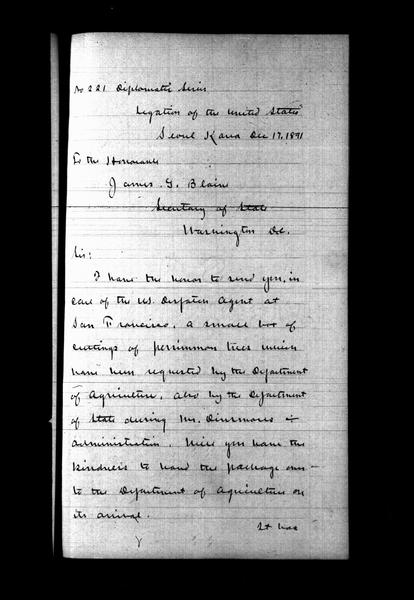 No 221 Diplomatic Series
Legation of the United States
Seoul Korea Dec 17, 1891
To the Honorable
James. G. Blaine
Secretary of State
Washington D.C.
Sir:
I have the honor to send you, in
care of the U.S. Despatch Agent at
San Francisco, a small box of
cuttings of persimmon trees which
have been requested by the Department
of Agriculture, also by the Department
of State during Mr. Dinsmore's
administration. Will you have the
kindness to hand the package over
to the Department of Agriculture on
its arrival.
It has